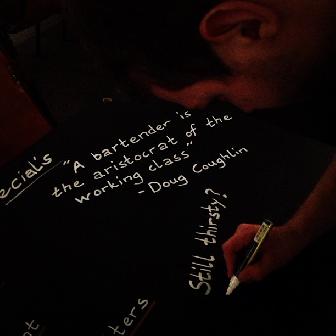 ecial's
"A bartender is
the aristocrat of the
working class"
- Doug Coughlin
Still thirsty?
ters